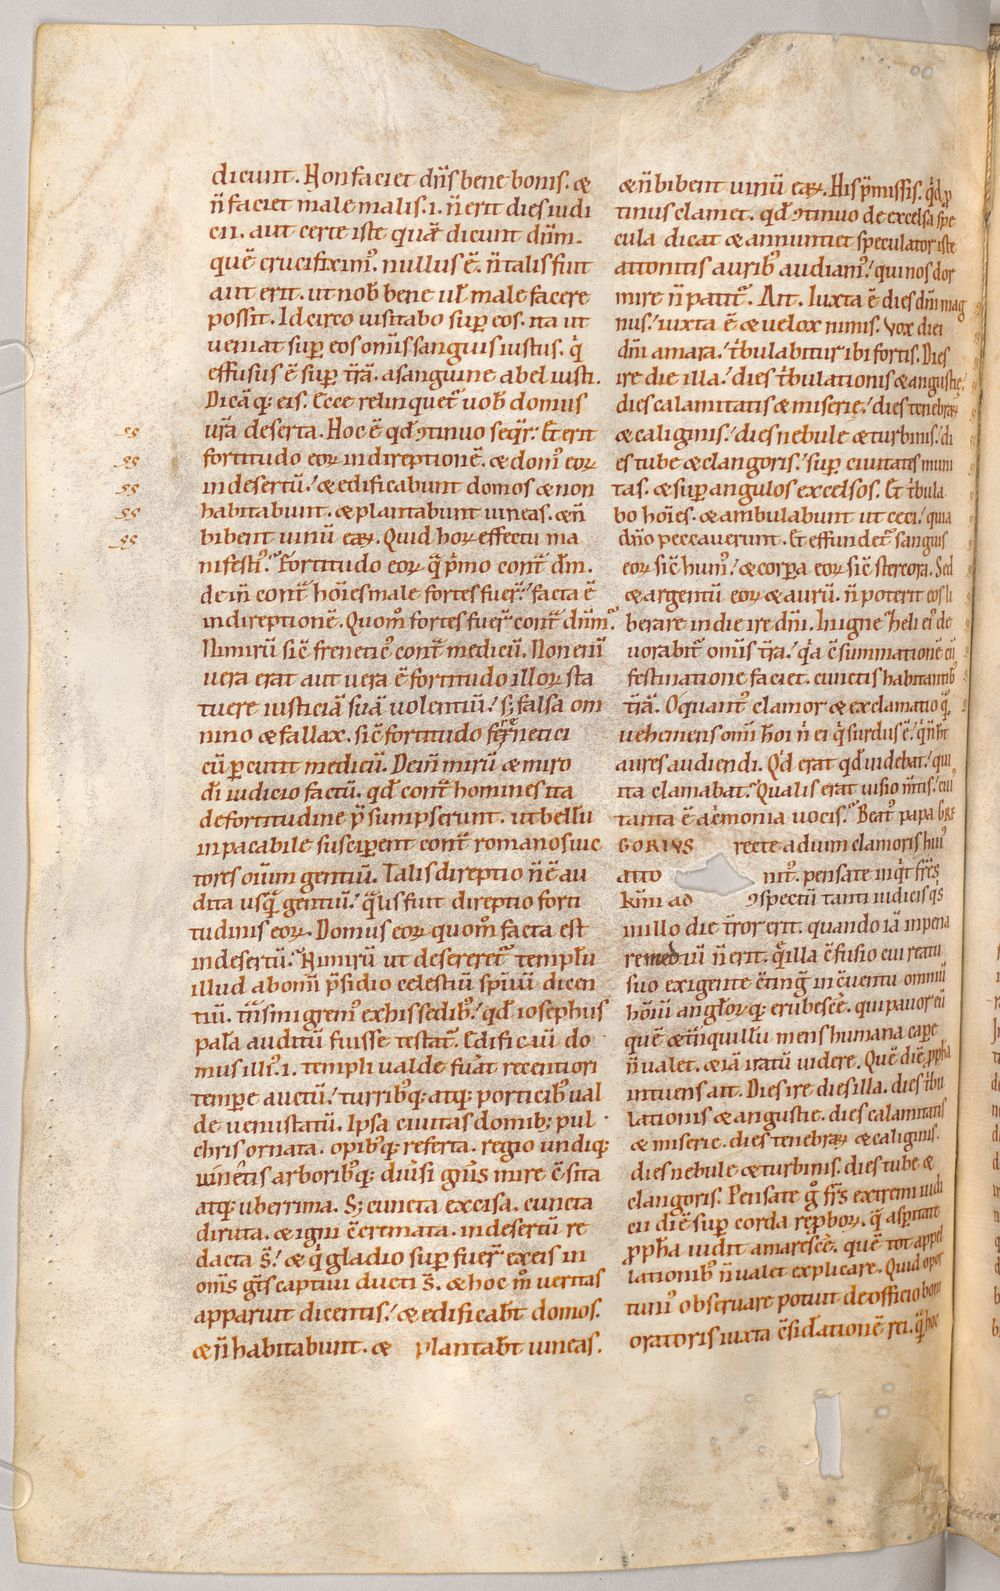 dicunt. Non faciet dn̄s bene bonis. &
n̄ faciet male malis. i. n̄ erit dies iudi
cii. aut certe iste quā dicunt dn̄m.
quē crucifixim᷒. nullus ē. n̄ talis fuit
aut erit. ut nob̄ bene ul̄ male facere
possit. Idcirco uisitabo sup̄ eos. ita ut
ueniat sup̄ eos om̄is sanguis iustus. q̇
effusus ē sup̄ t̄rā. a sanguine abel iusti.
Dicā q; eis. Ecce relinquet᷑ uob̄ domus
ur̄a deserta. Hoc ē qd̄ ꝯtinuo seq̄r. Et erit
fortitudo eoꝝ in direptionē. & dom᷒ eoꝝ
in desertū. & edificabunt domos & non
habitabunt. & plantabunt uineas. & n̄
bibent uinū eaꝝ. Quid hoꝝ effectu ma
nifesti᷒. Fortitudo eoꝝ q̄ p̄mo cont̄ dm̄.
dein̄ cont̄ hōies male fortes fuer̄. facta ē
in direptionē. Quom̊ fortes fuer̄ cont̄ dn̄m.
Nimirū sic̄ frenetic᷒ cont̄ medicū. Non enī
uera erat aut uera ē fortitudo illoꝝ sta
tuere iusticiā suā uolentiū. s; falsa om
nino & fallax. sic̄ fortitudo frenetici
cū p̱cutit medicū. Dein̄ mirū & miro
dī iudicio factū. qd̄ cont̄ homines ita
de fortitudine p̄sumpserunt. ut bellū
inpacabile susciperent cont̄ romanos uic
tores om̄iū gentiū. Talis direptio n̄ ē au
dita usq̄ gentiū. q̄lis fuit direptio forti
tudinis eoꝝ. Domus eoꝝ quom̊ facta est
in desertū. Nimirū ut desereret᷑ templū
illud ab om̄i p̄sidio celestiū sp̄iuū dicen
tiū. t̄nsmigrem᷒ ex his sedib᷒. qd̄ iosephus
palā auditū fuisse testat᷑. Edificiū do
mus illi᷒. i. templi ualde fuāt recentiori
tempore auctū. turrib᷒q; atq; porticib᷒ ual
de uenustatū. Ipsa ciuitas domib; pul
chris ornata. opib᷒q; referta. regio undiq;
uinetis arborib᷒q; diuīsi gn̄is mire c̄sita
atq; uberrima. S; cuncta excisa. cuncta
diruta. & igni c̄cremata. in desertū re
dacta s̄. & q̇ gladio sup̄fuer̄ excis in
om̄s gt̄s captiui ducti s̄. & hoc m̊ ueritas
apparuit dicentis. & edificab̄t domos.
& n̄ habitabunt. & plantab̄t uineas.
& n̄ bibent uinū eaꝝ. His p̄missis. q̇d
tinus clamet. qd̄ ꝯtinuo de excelsa spe
cula dicat & annuntiet speculator iste
attonitis aurib᷒ audiam᷒. qui nos dor
mire n̄ patit᷑. Ait. Iuxta ē dies dn̄i mag
nus. iuxta ē & uelox nimis. Vox diei
dn̄i amara. t̄bulabitur ibi fortis. Dies
ire die illa. dies t̄bulationis & angustiȩ.
dies calamitatis & miseriȩ. dies tenebraꝝ
& caliginis. dies nebule & turbinis. di
es tube & clangoris. sup̄ ciuitatis muni
tas. & sup̄ angulos excelsos. Et t̄bula
bo hōies. & ambulabunt ut ceci. quia
dn̄o peccauerunt. Et effundet᷑ sanguis
eoꝝ sic̄ hum᷒. & corp̄a eoꝝ sic̄ stercora. Sed
& argentū eoꝝ & aurū. n̄ poterit eos li
berare in die ire dn̄i. In igne heli ei᷒ de
uorabit᷑ om̄is t̄ra. q̇a c̄summationē cū
festinatione faciet. cunctis habitantib᷒
t̄rā. O quant᷒ clamor & exclamatio q̄
uehemens om̄i hōi n̄ ei q̇ surdus ē. q̇ n̄ hт̄
aures audiendi. Qd̄ erat qd̄ uidebat. qui
ita clamabat. Qualis erat uisio m̄tis. cui᷒
tanta ē acrimonia uocis. Beat᷒ papa GRE
GORIVS recte ad uim clamoris hui᷒
atto nit᷒. pensate inqt̄ fr̄s
km̄i ad ꝯspectū tanti iudicis qs
in illo die t̄ror erit. quando iā in pena
remediū n̄ erit. q̄ illa c̄fusio cui reatu
suo exigente c̄tinḡ in c̄uentu omniū
hōiū angl̄oꝝq; erubesc̄e. qui pauor eū
quē & t̄nquillū mens humana cape
n̄ ualet. & iā iratū uidere. Quē diē pp̄ha
intuens ait. Dies ire dies illa. dies t̄bu
lationis & angustie. dies calamitatis
& miserie. dies tenebraꝝ & caliginis.
dies nebule & turbinis. dies tube &
clangoris. Pensate g̊ fr̄s extremi iudi
cii diē sup̄ corda rep̄boꝝ. q̄ asp̄itate
pp̄ha uidit amaresc̄e. quē tot appel
lationib᷒ n̄ ualet explicare. Quid opor
tuni᷒ obseruare potuit de officio boni
oratoris iuxta c̄sid̄ationē rei. q̄ hoc